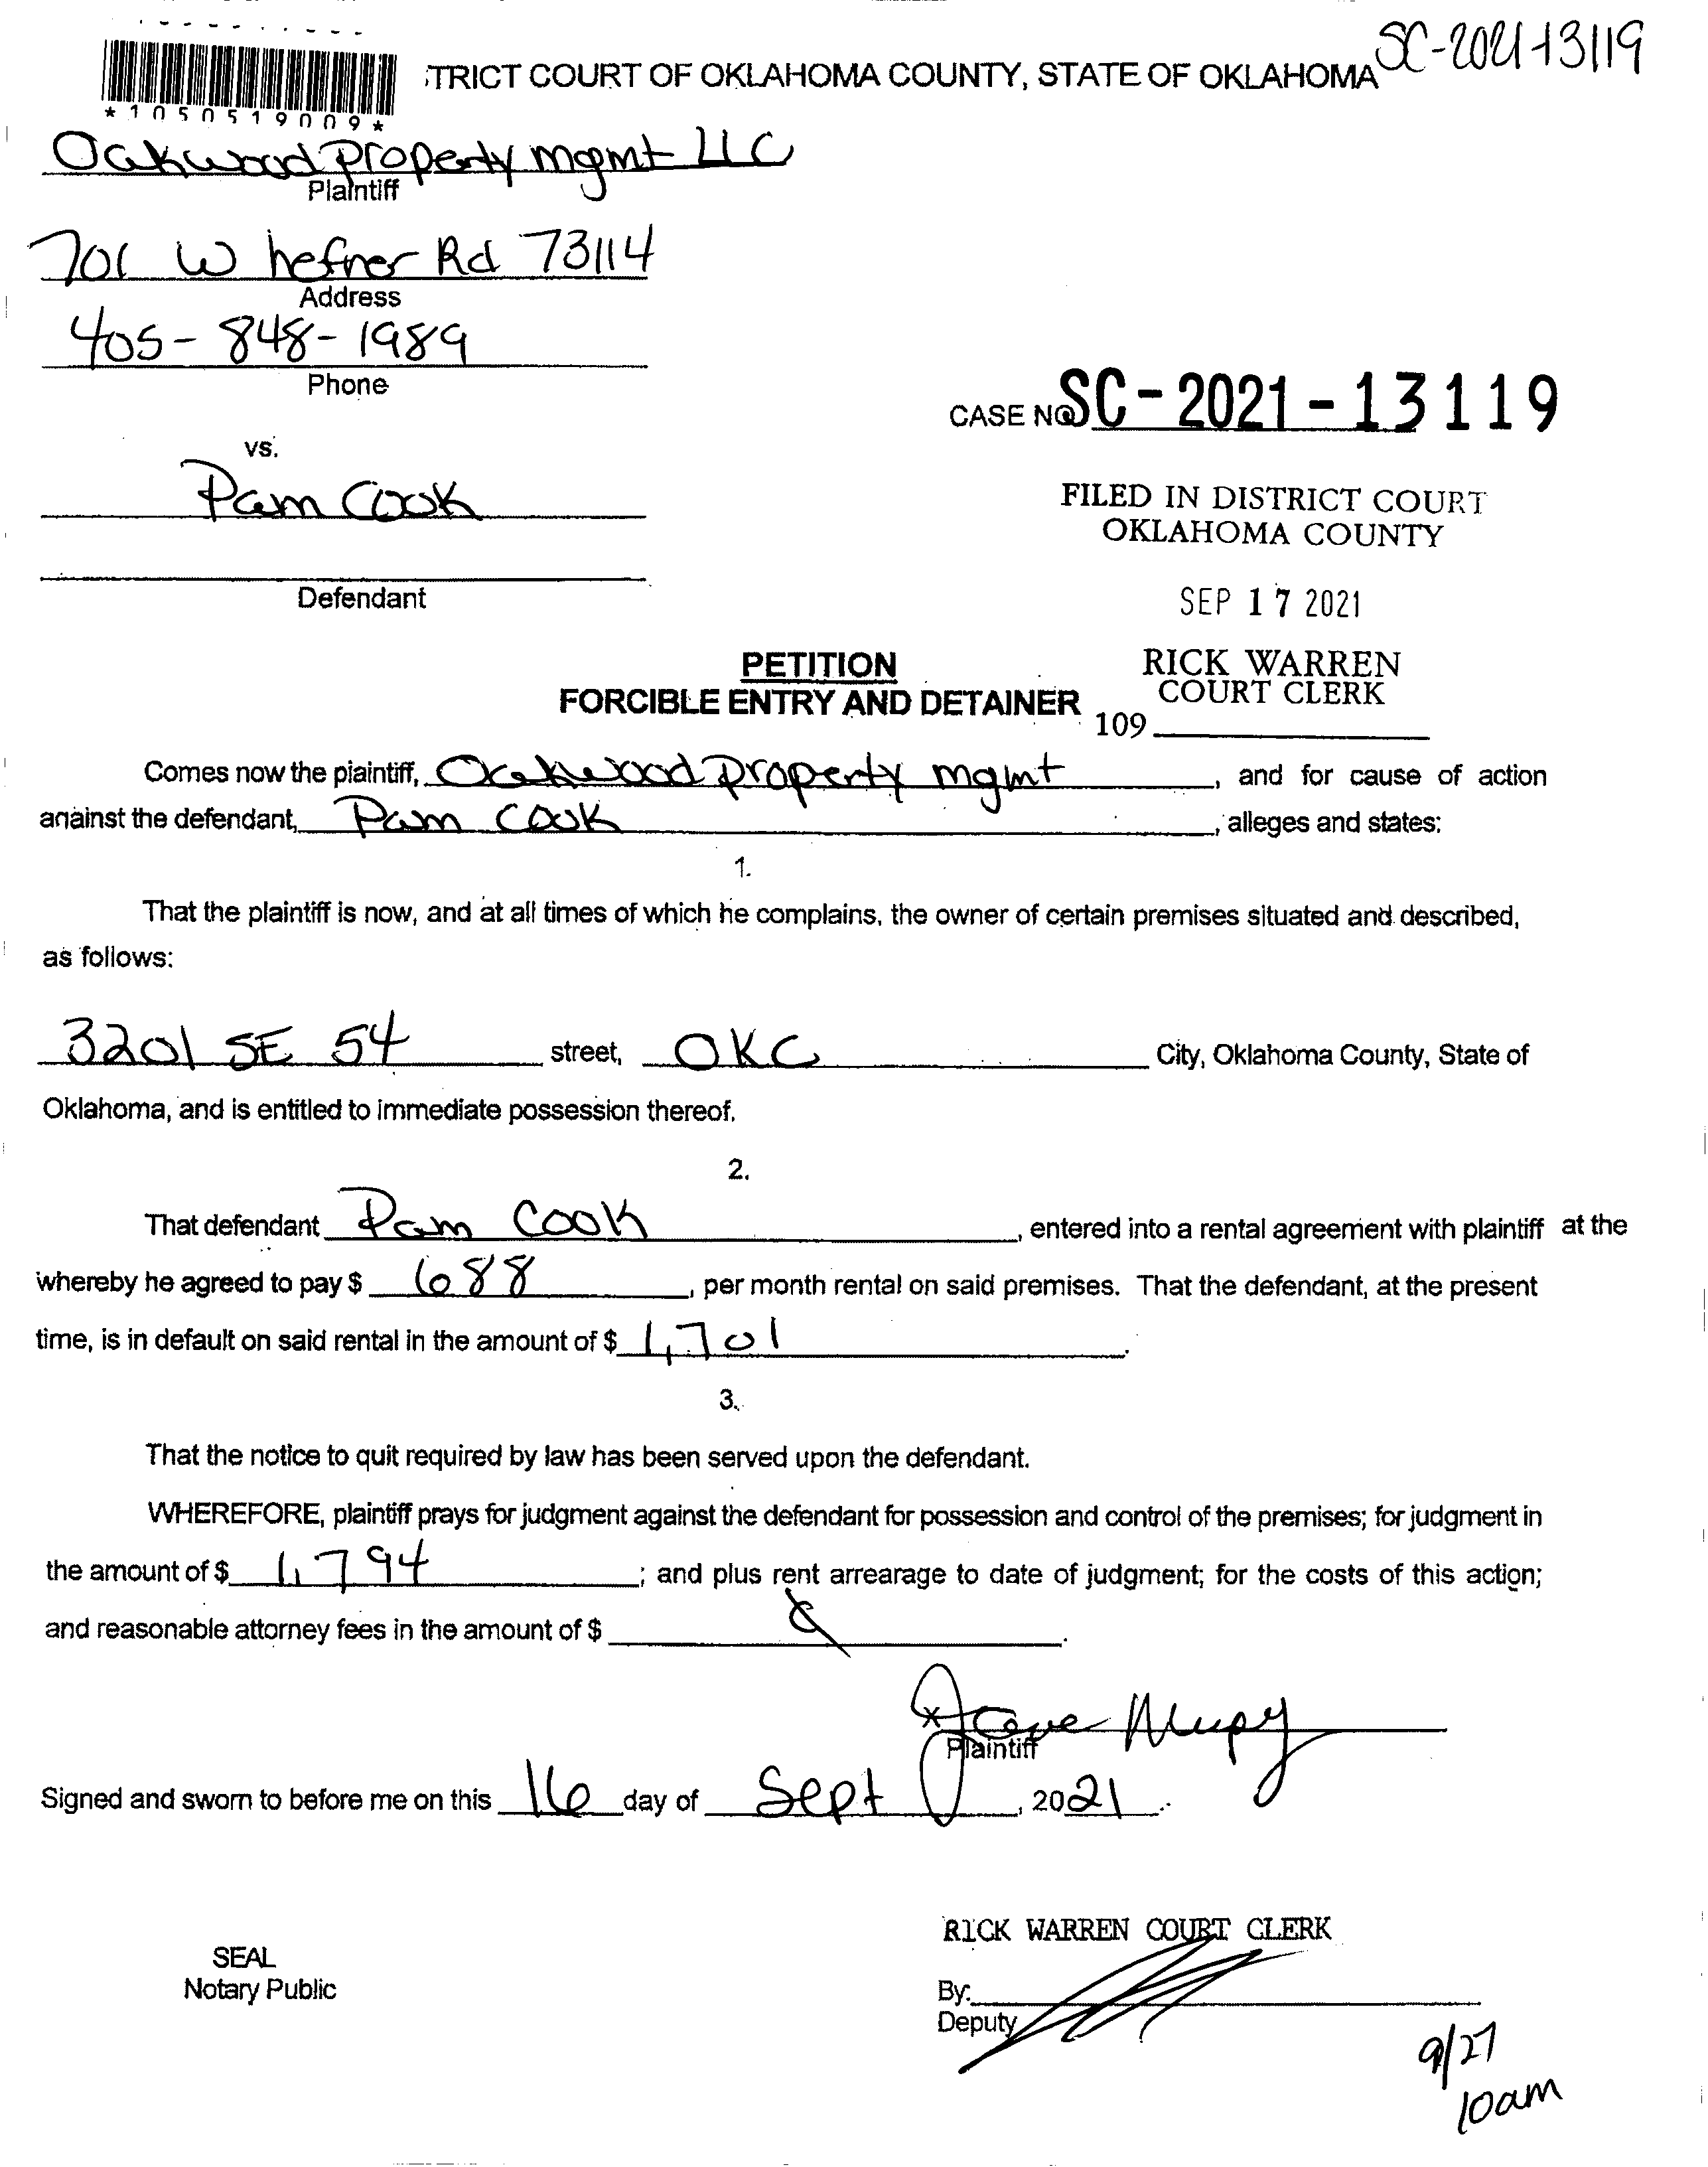 SC-2021-13119
TRICT COURT OF OKLAHOMA COUNTY, STATE OF OKLAHOMA
*1050519009*
Oakwood Property mgmt LLC
Plaintiff
701 W hefner Rd 73114
Address
405-848-1989
Phone
CASE NO SC-2021-13119
vs.
Pam Cook
FILED IN DISTRICT COURT
OKLAHOMA COUNTY
Defendant
SEP 17 2021
PETITION
RICK WARREN
COURT CLERK
FORCIBLE ENTRY AND DETAINER
109
Comes now the plaintiff, Oakwood Property mgmt, and for cause of action
against the defendant, Pam Cook, alleges and states:
1.
That the plaintiff is now, and at all times of which he complains, the owner of certain premises situated and described,
as follows:
3201 SE 54 street, OKC City, Oklahoma County, State of
Oklahoma, and is entitled to immediate possession thereof.
2.
That defendant Pam Cook, entered into a rental agreement with plaintiff at the
whereby he agreed to pay $ 688, per month rental on said premises. That the defendant, at the present
time, is in default on said rental in the amount of $ 1,701.
3.
That the notice to quit required by law has been served upon the defendant.
WHEREFORE, plaintiff prays for judgment against the defendant for possession and control of the premises; for judgment in
the amount of $ 1,794; and plus rent arrearage to date of judgment; for the costs of this action;
and reasonable attorney fees in the amount of $
Plaintiff
Signed and sworn to before me on this 16 day of Sept, 2021.
RICK WARREN COURT CLERK
SEAL
Notary Public
By:
Deputy
9/27
10am